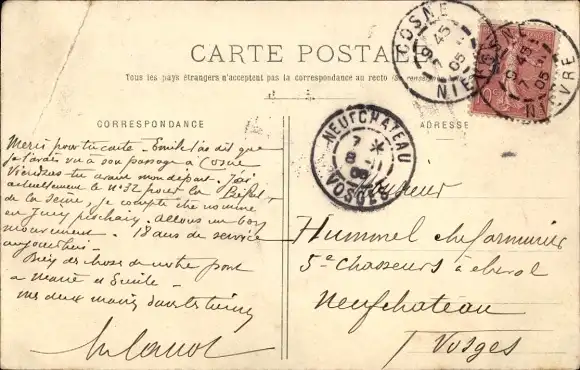 CARTE POSTALE
Tous les pays étrangers n'acceptent pas la correspondance au recto
CORRESPONDANCE
ADRESSE
COSNE
9 45
05
NIEVRE
COSNE
9 45
7
05
NIEVRE
NEUFCHATEAU
7 *
8
VOSGES
Merci pour ta carte - Emile m'a dit que
je t'avais vu à son passage à Cosne
tu avant mon départ. J'ai
actuellement le n° 32 pour la Préfet
de la Seine, je compte être nommé
en prochain. allons un bon
mouvement. 18 ans de service
aujourd'hui
Bien des choses de notre part
à Marie et Emile
vos deux mains
Monsieur
Hummel chef armurier
5e Chasseurs à cheval
Neufchateau
Vosges